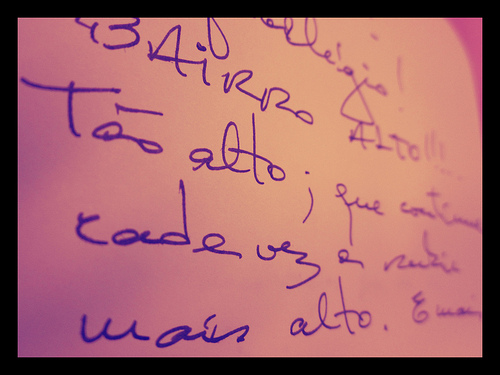 BAIRRO ALTO!!!
Tão alto; que continua
cada vez a subir
mais alto. E mais